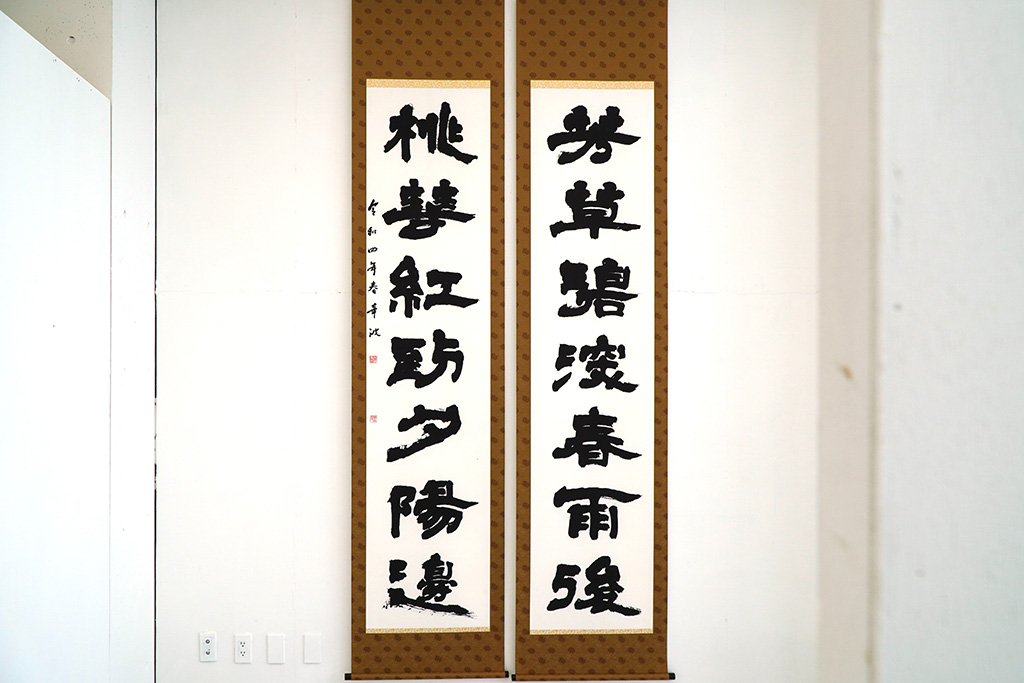 芳草碧深春雨後
桃華紅動夕陽邊
令和四年春華波